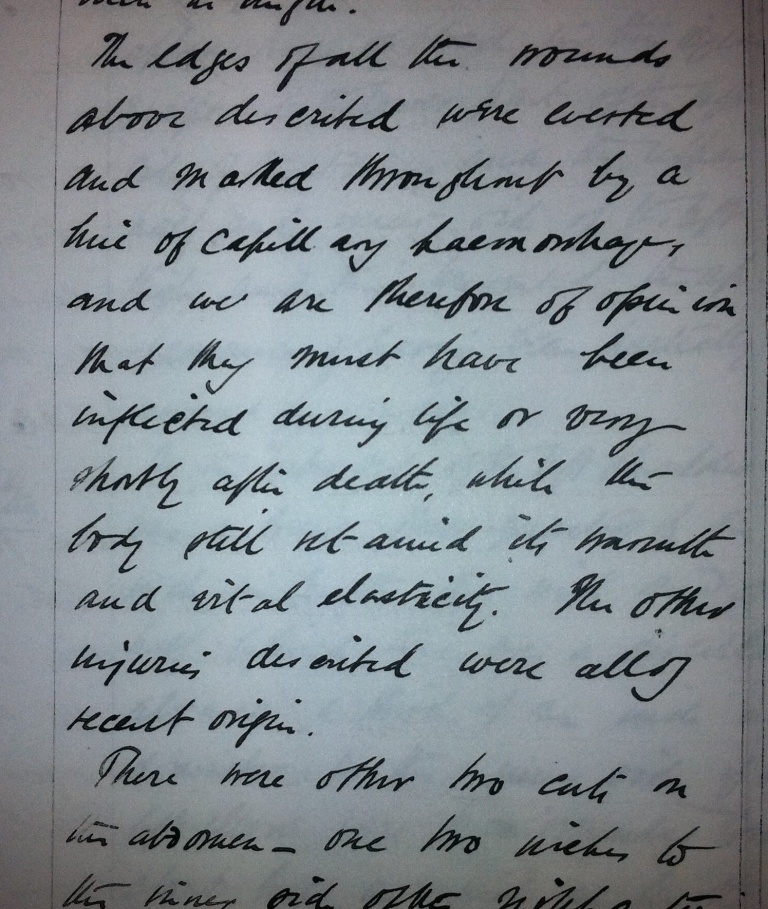 The edges of all the wounds
above described were everted
and marked throughout by a
line of capillary haemorrhage,
and we are therefore of opinion
that they must have been
inflicted during life or very
shortly after death, while the
body still retained its warmth
and vital elasticity. The other
injuries described were all of
recent origin.
There were other two cuts on
the abdomen - one two inches to
the inner side of the right